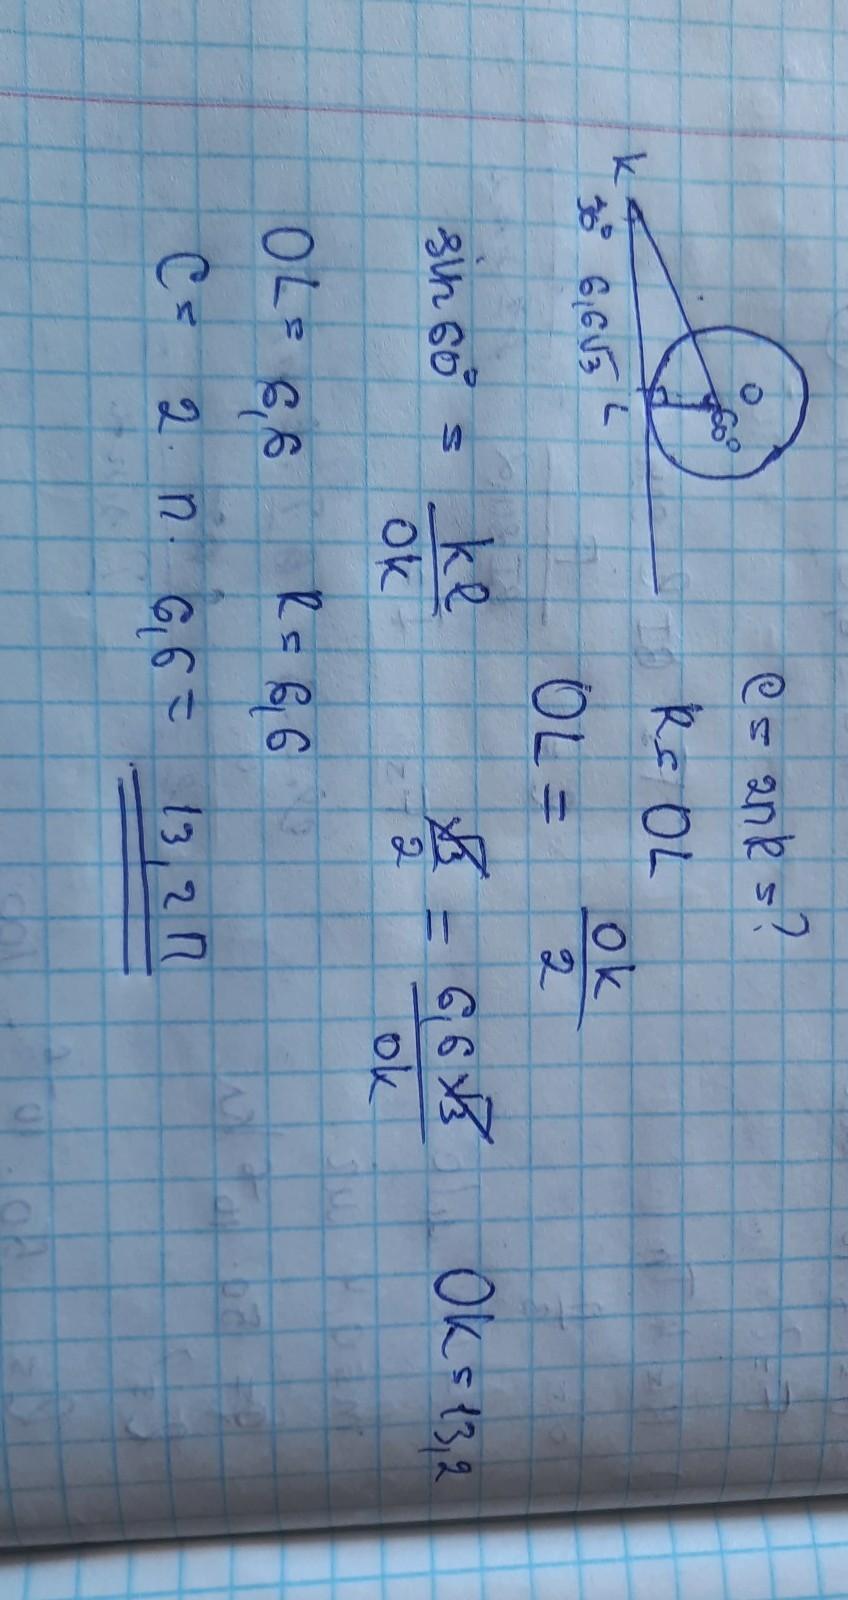 K 30° 6,6√3 L O 60°
C = 2πR = ?
R = OL
OL = OK/2
sin 60° = KL/OK √3/2 = 6,6√3/OK OK = 13,2
OL = 6,6 R = 6,6
C = 2 · π · 6,6 = 13,2π